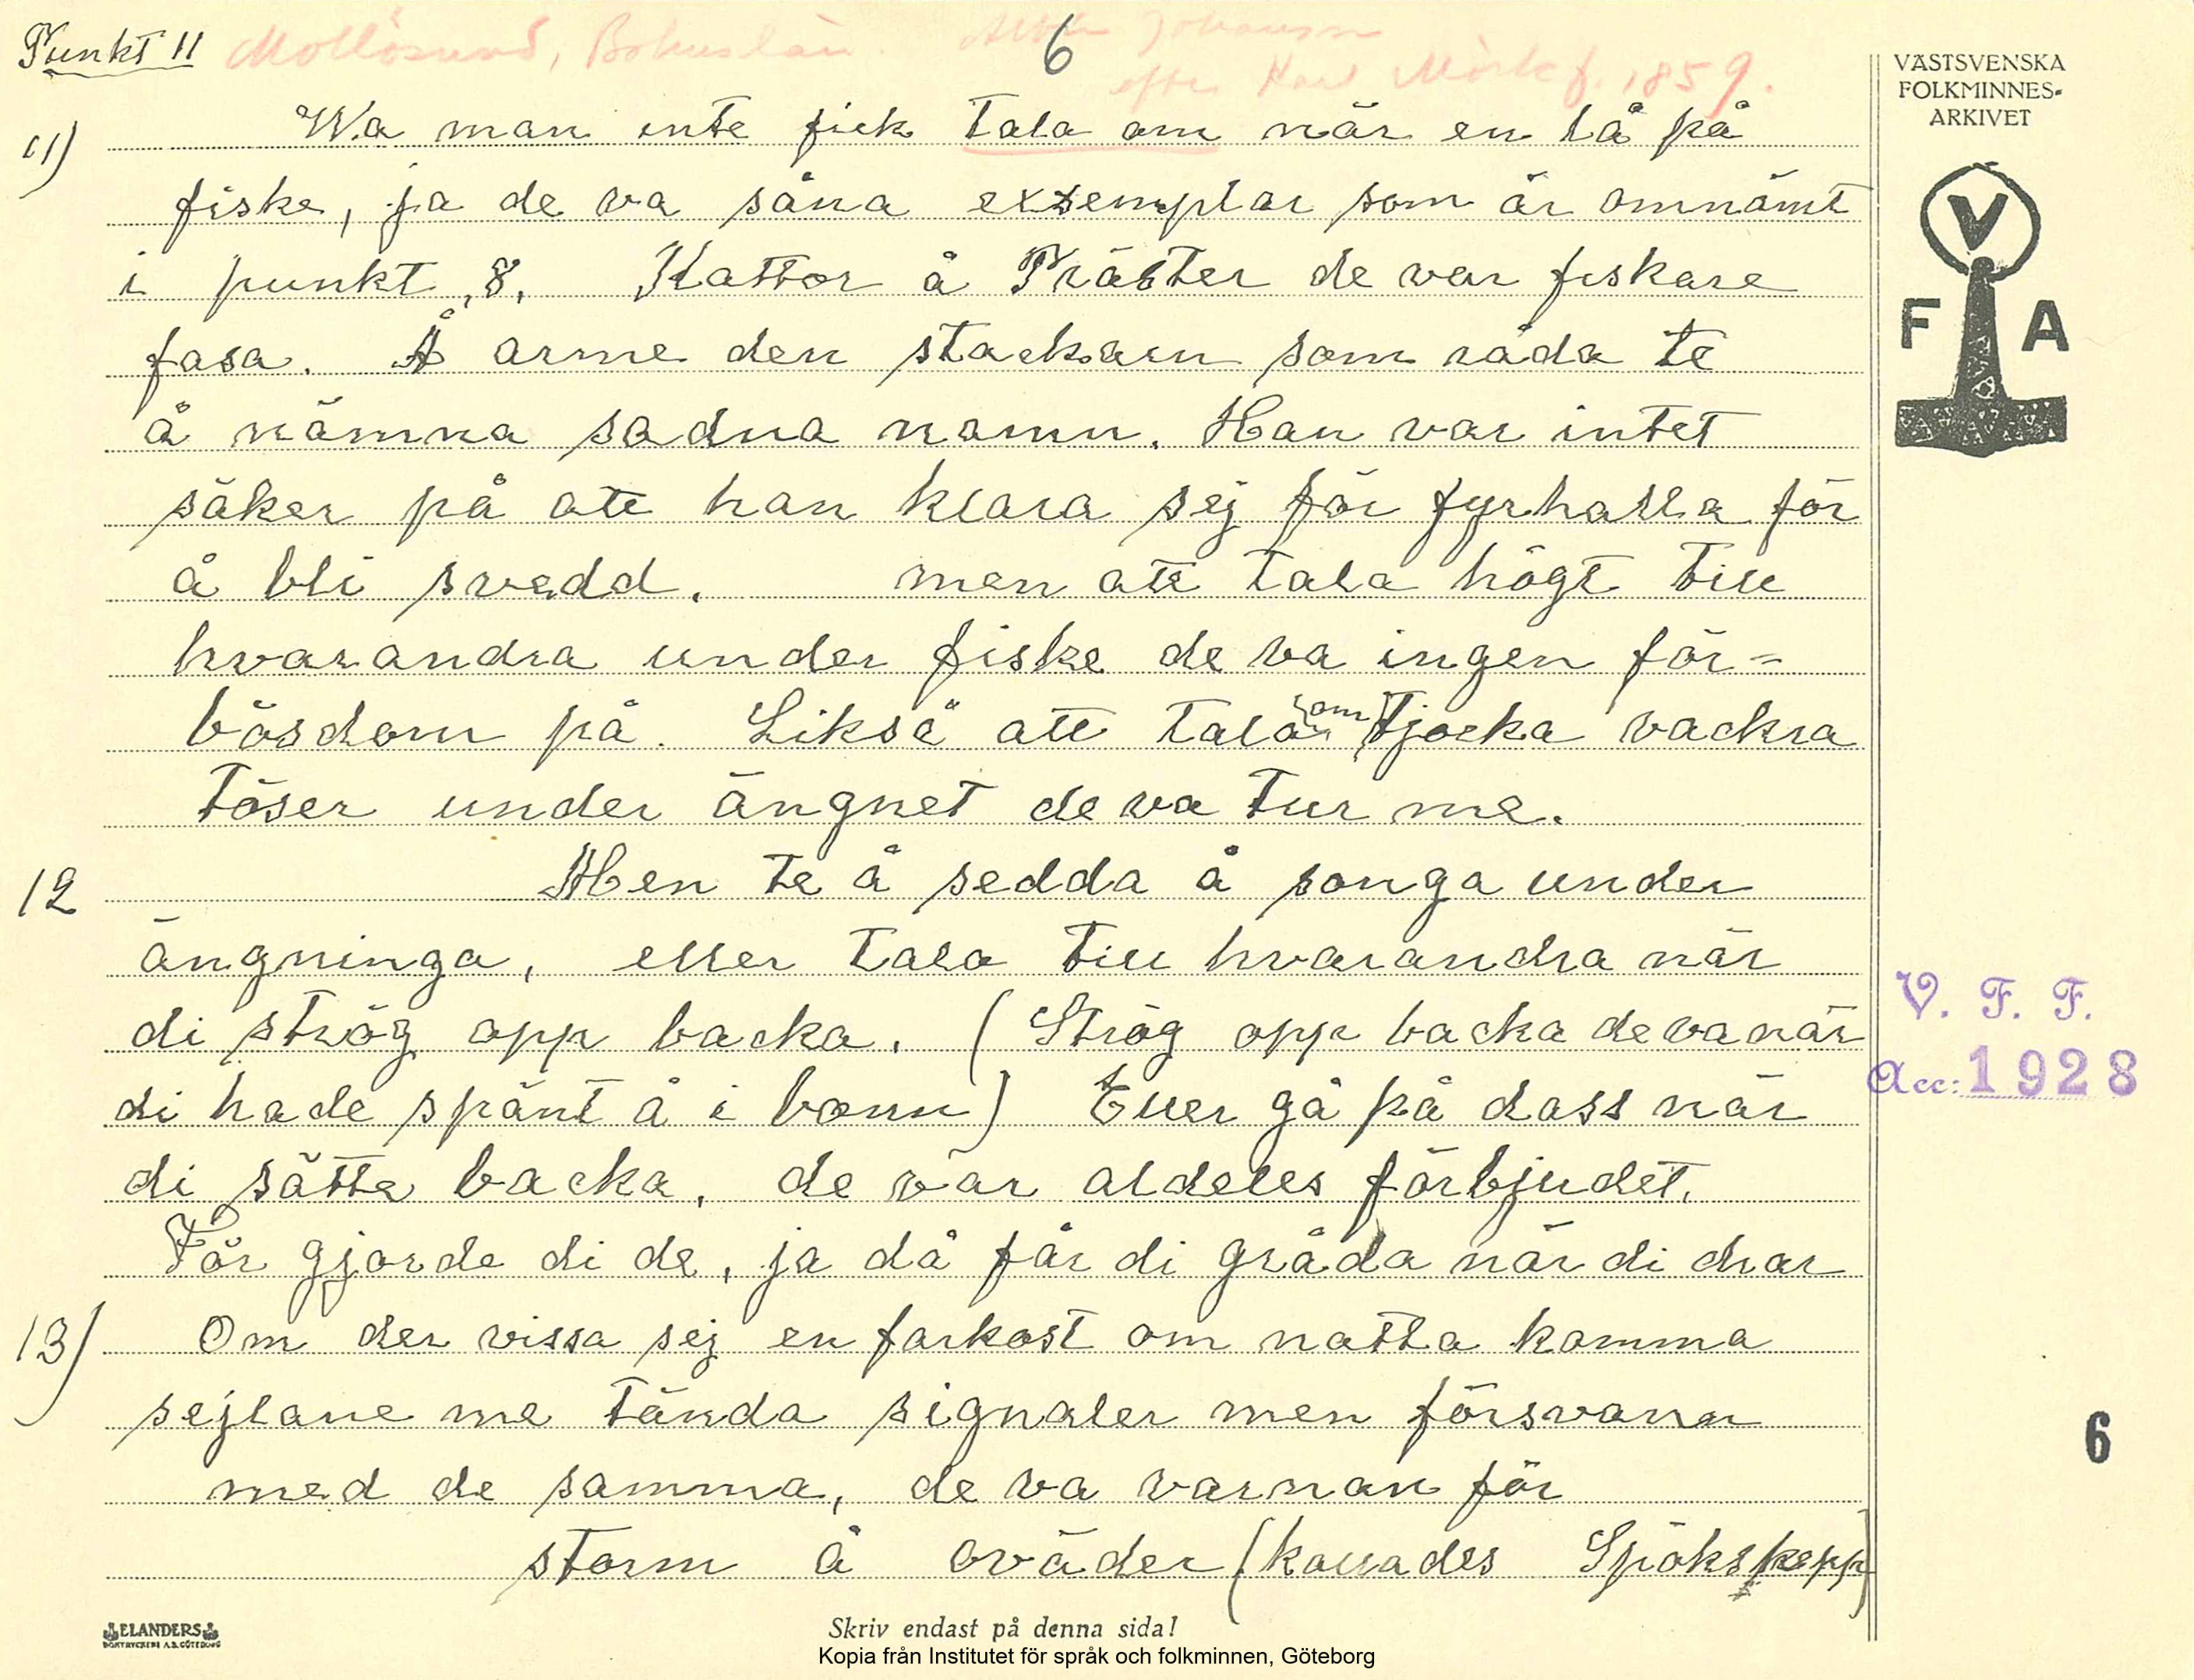 Punkt 11 Mollösund, Bohuslän. 6 Johansson
efter Karl Mörk f. 1859.
VÄSTSVENSKA
FOLKMINNES-
ARKIVET
11) Wa man inte fick tala om när en lå på
fiske, ja de va såna exsemplar som är omnämt
i punkt 8. Kattor å Präster de var fiskare
fasa. Å arme den stackarn som råda te
å nämna sadna namn. Han var intet
säker på att han klara sej för fyrhalla för
å bli svedd. men att tala högt till
hvarandra under fiske de va ingen för=
bösdom på. Likså att tala om tjocka vackra
töser under ängnet de va tur me.
12 Men te å sedda å songa under
ängninga, eller tala till hvarandra när
di strög opp backa. (Strög opp backa de va när
di hade spänt å i bonn) Eller gå på dass när
di sätte backa, de var aldeles förbjudet.
För gjorde di de, ja då får di gråda när di drar
13) Om der vissa sej en farkost om natta komma
sejlane me tända signaler men försvann
med de samma, de va varnan för
storm å oväder (kallades Spökskepp)
V
F A
V. F. F.
Acc: 1928
6
ELANDERS
BOKTRYCKERI A.B. GÖTEBORG
Skriv endast på denna sida!
Kopia från Institutet för språk och folkminnen, Göteborg